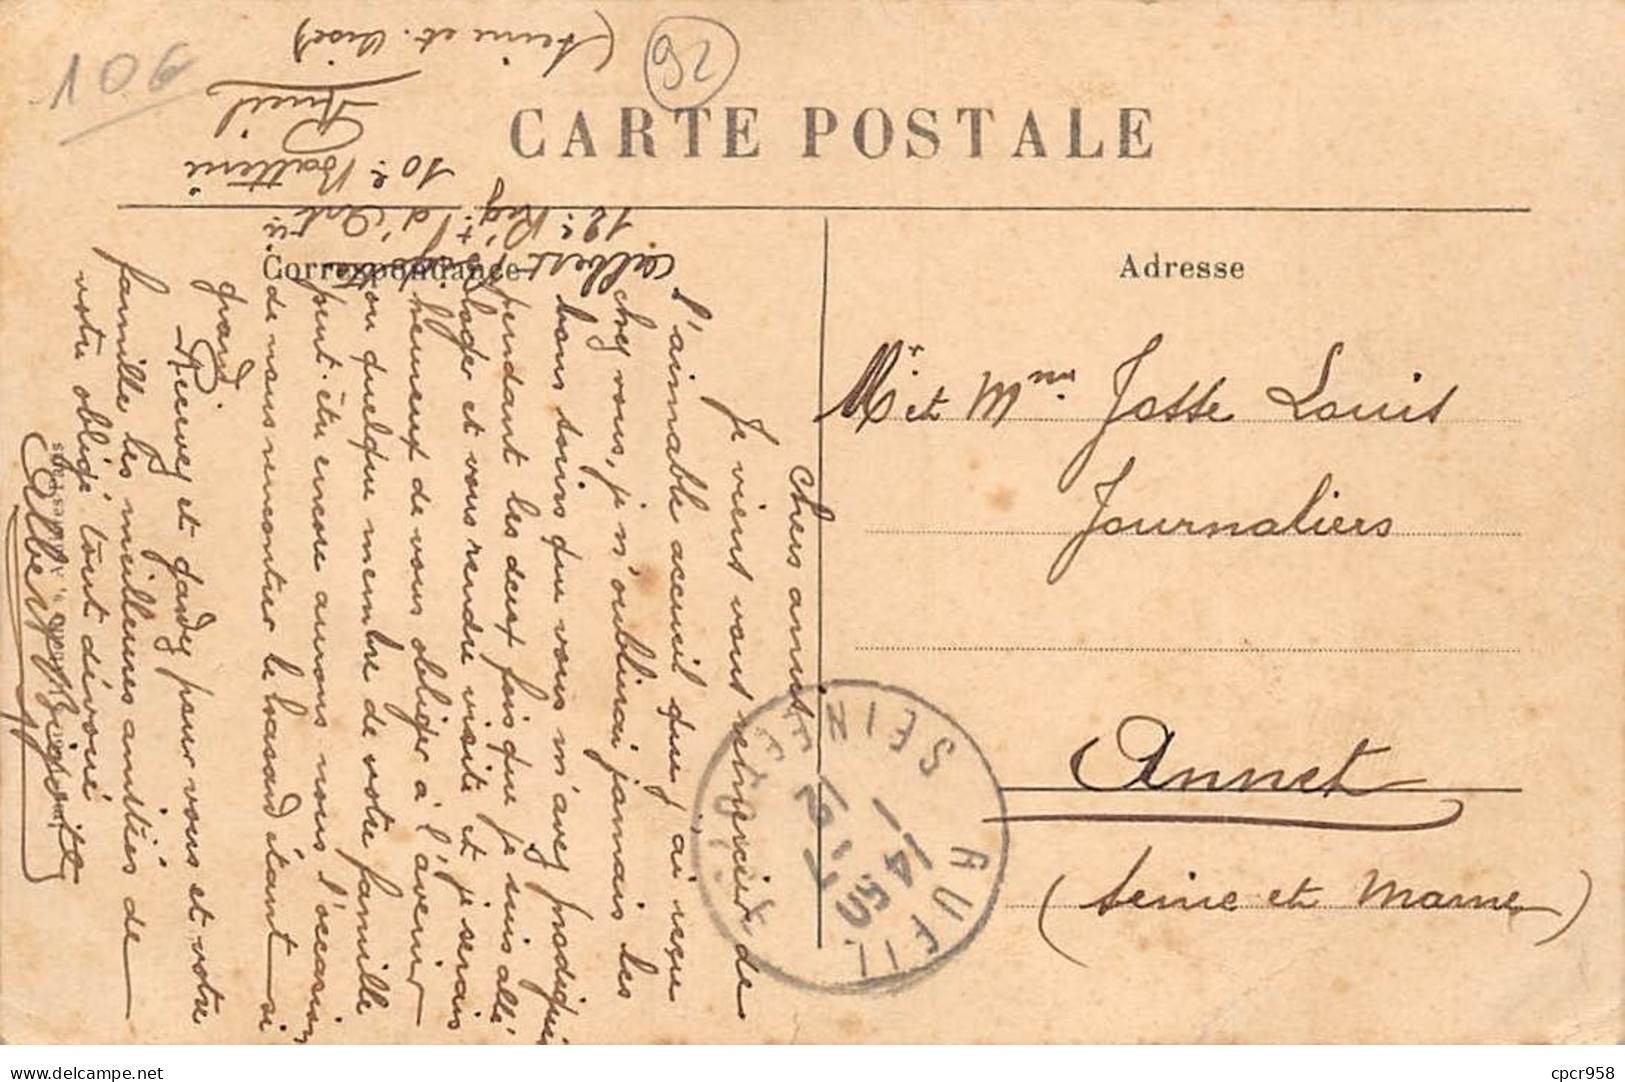 106
92
CARTE POSTALE
Correspondance
Adresse
Mr et Mme Josse Louis
Journaliers
Annet
(Seine et Marne)
Chers amis
Je viens vous remercier de
l'aimable accueil que j'ai reçu
chez vous, je n'oublierai jamais les
bons soins que vous m'avez prodigués
pendant les deux fois que je suis allé
loger et vous rendre visite et je serais
heureux de vous obliger à l'avenir
ou quelque membre de votre famille
peut-être encore aurons nous l'occasion
de nous rencontrer le hasard étant si
grand.
Recevez et gardez pour vous et votre
famille les meilleures amitiés de
votre obligé tout dévoué
Albert
Albert
12e Rég.t d'Art.ie
10e Batterie
Rueil
(Seine et Oise)
RUEIL
SEINE ET OISE
14 50
1
12
delcampe.net
cpcr958